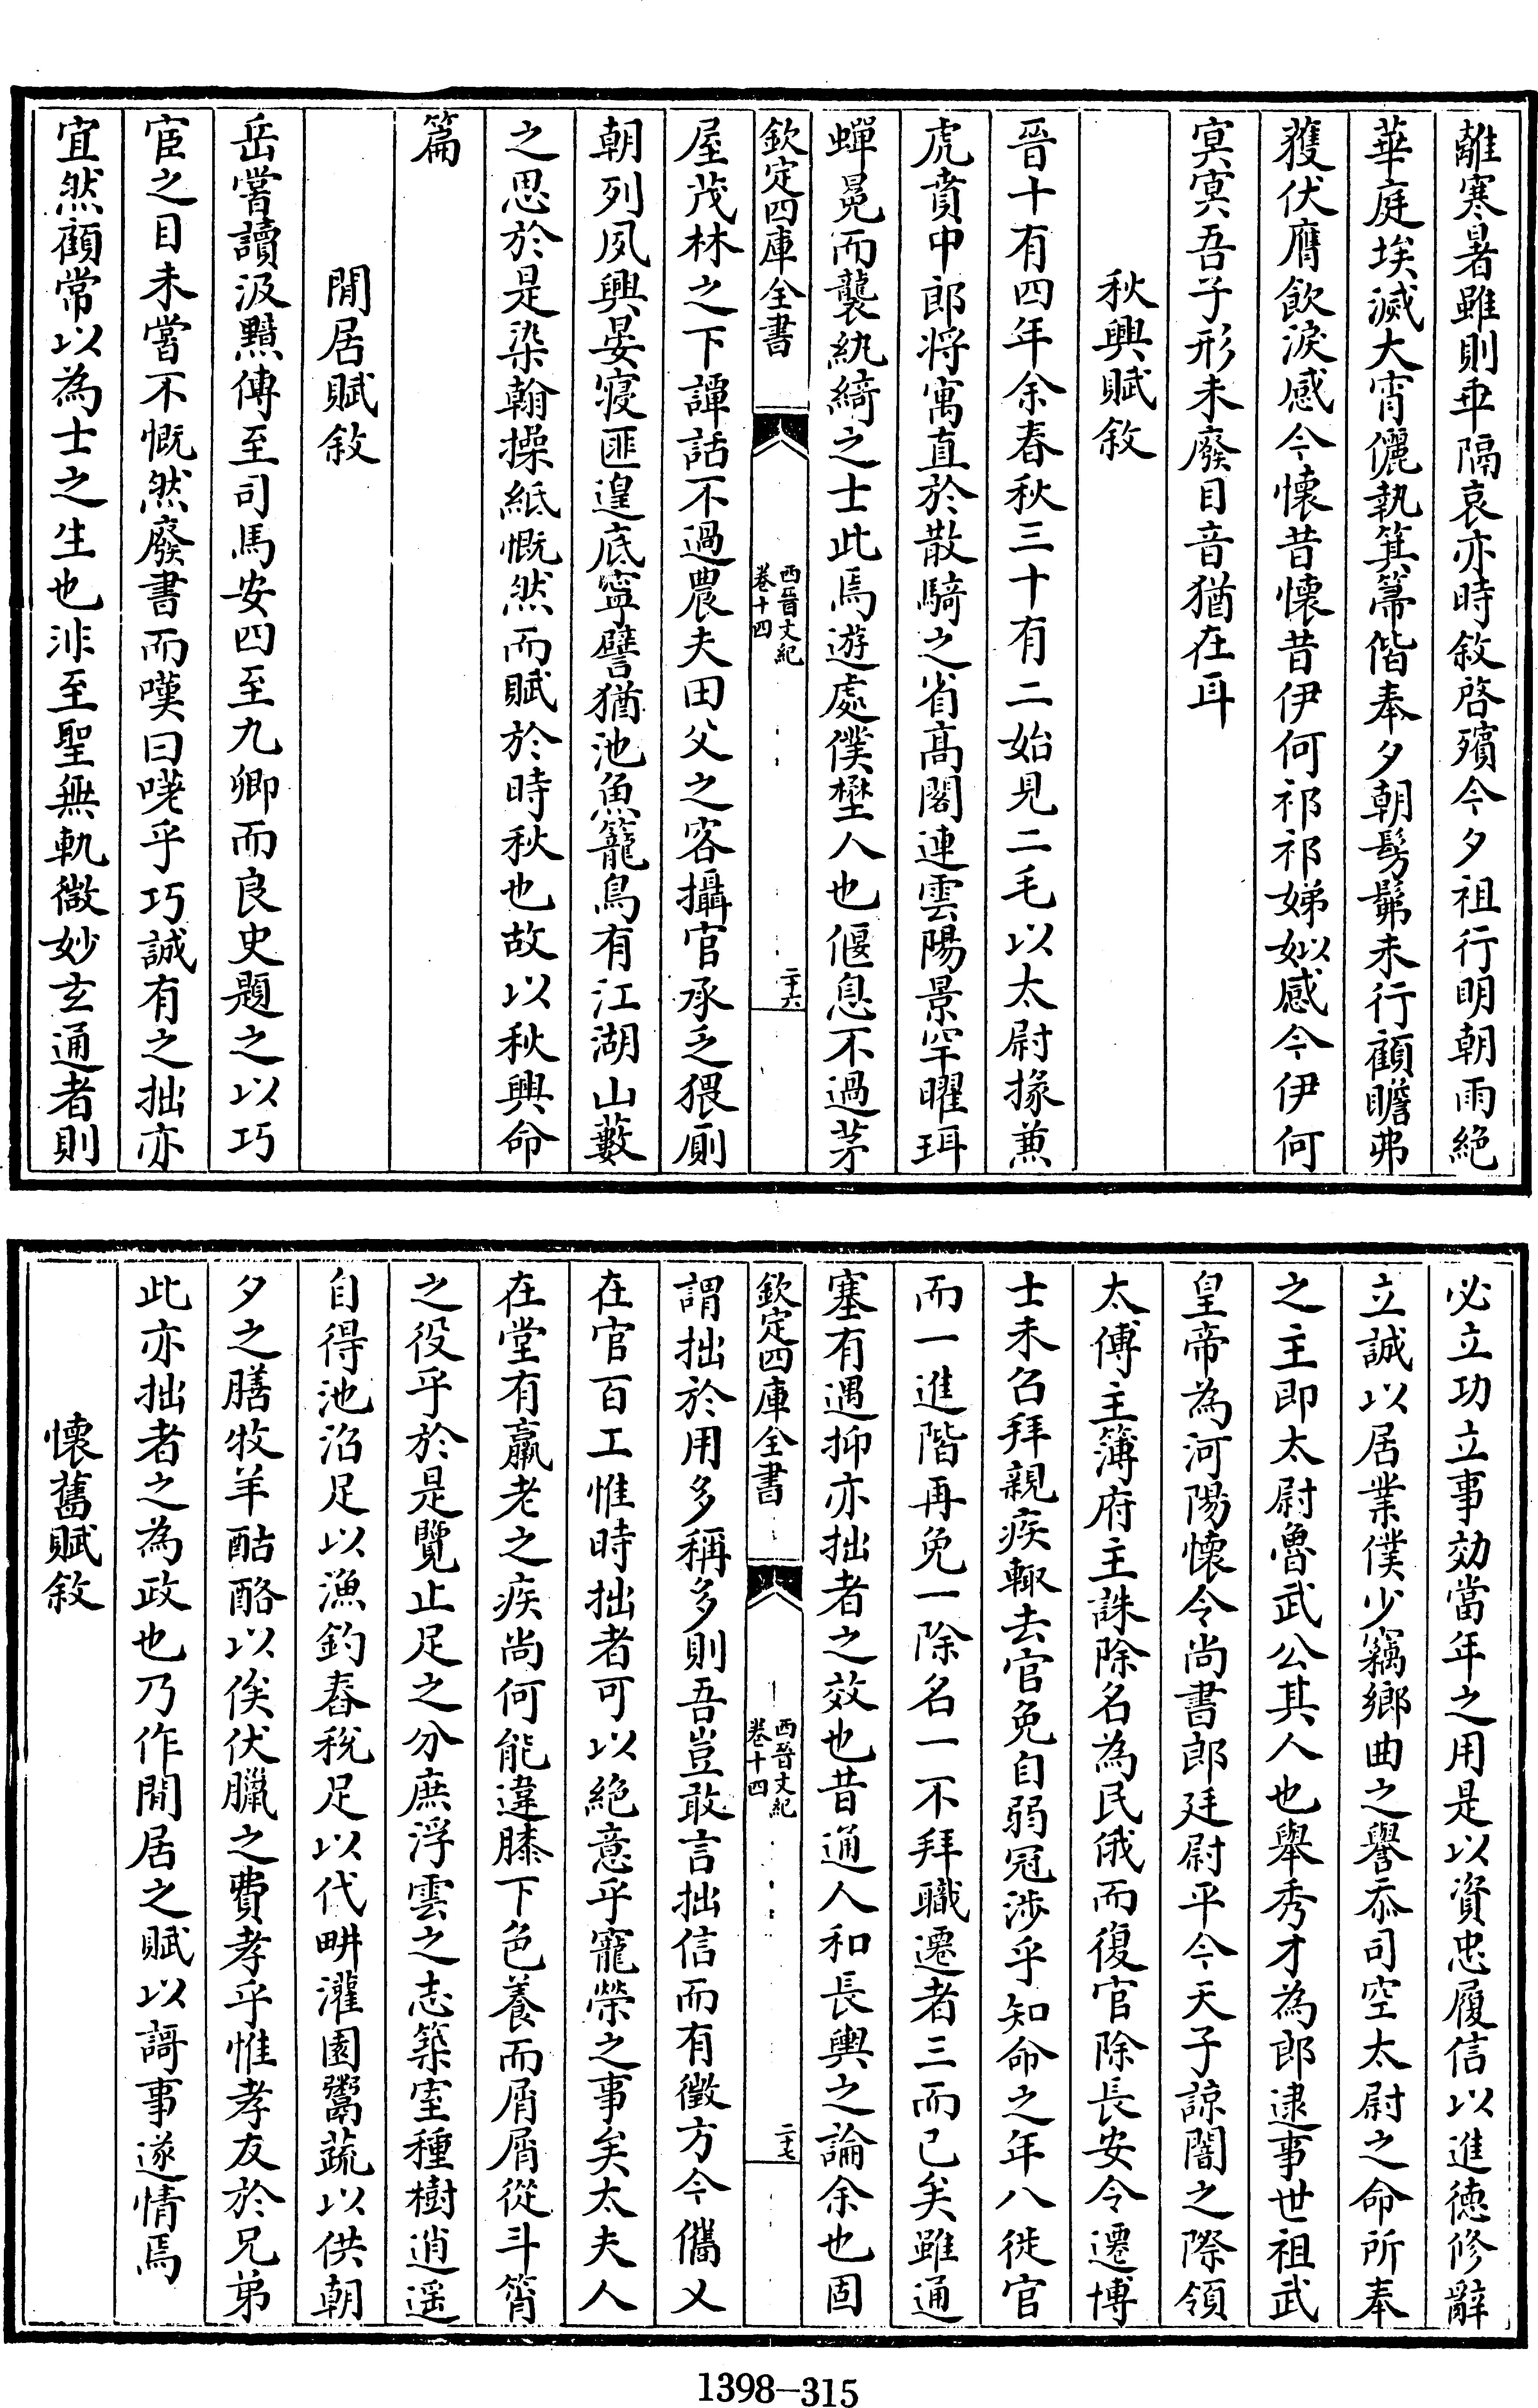 離寒暑雖則乖隔哀亦時敘啓殯今夕祖行明朝雨絶
華庭埃滅大宵儷執箕箒偕奉夕朝髣髴未行顧瞻弗
獲伏膺飲淚感今懷昔懷昔伊何祁祁娣姒感今伊何
冥冥吾子形未廢目音猶在耳
秋興賦敘
晉十有四年余春秋三十有二始見二毛以太尉掾兼
虎賁中郎將寓直於散騎之省高閣連雲陽景罕曜珥
蟬冕而襲紈綺之士此焉遊處僕野人也偃息不過茅
欽定四庫全書
西晉文紀
卷十四
二十六
屋茂林之下譚話不過農夫田父之客攝官承乏猥廁
朝列夙興晏寢匪遑底寧譬猶池魚籠鳥有江湖山藪
之思於是染翰操紙慨然而賦於時秋也故以秋興命
篇
閒居賦敘
岳嘗讀汲黯傳至司馬安四至九卿而良史題之以巧
宦之目未嘗不慨然廢書而嘆曰嗟乎巧誠有之拙亦
宜然顧常以為士之生也非至聖無軌微妙玄通者則
必立功立事効當年之用是以資忠履信以進德修辭
立誠以居業僕少竊鄉曲之譽忝司空太尉之命所奉
之主即太尉魯武公其人也舉秀才為郎逮事世祖武
皇帝為河陽懷令尚書郎廷尉平今天子諒闇之際領
太傅主簿府主誅除名為民俄而復官除長安令遷博
士未召拜親疾輒去官免自弱冠涉乎知命之年八徙官
而一進階再免一除名一不拜職遷者三而已矣雖通
塞有遇抑亦拙者之效也昔通人和長輿之論余也固
欽定四庫全書
西晉文紀
卷十四
二十七
謂拙於用多稱多則吾豈敢言拙信而有徵方今儁乂
在官百工惟時拙者可以絶意乎寵榮之事矣太夫人
在堂有羸老之疾尚何能違膝下色養而屑屑從斗筲
之役乎於是覽止足之分庶浮雲之志築室種樹逍遥
自得池沼足以漁釣舂稅足以代畊灌園鬻蔬以供朝
夕之膳牧羊酤酪以俟伏臘之費孝乎惟孝友於兄弟
此亦拙者之為政也乃作閒居之賦以謌事遂情焉
懷舊賦敘
1398-315